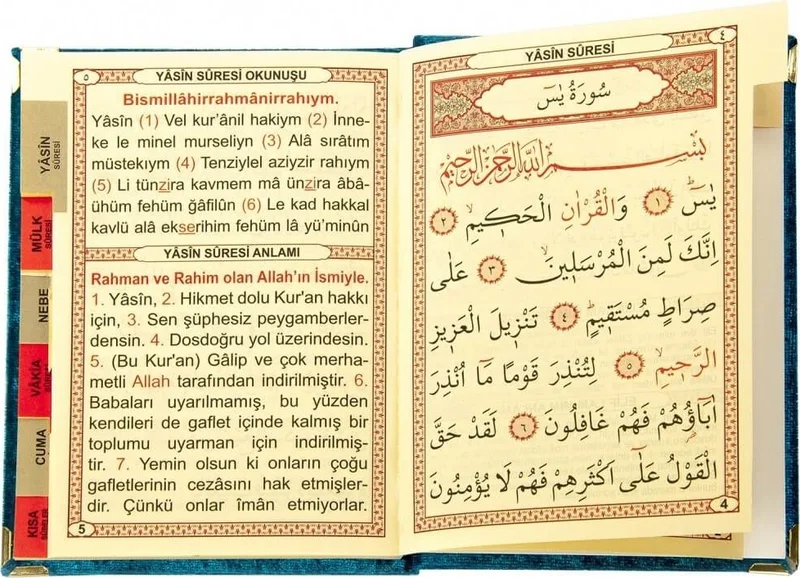 ٤
YÂSÎN SÛRESİ
سُورَةُ يٰسٓ
بِسْمِ اللّٰهِ الرَّحْمٰنِ الرَّحِيمِ
يٰسٓ ۚ ﴿١﴾ وَالْقُرْاٰنِ الْحَكٖيمِۙ ﴿٢﴾
اِنَّكَ لَمِنَ الْمُرْسَلٖينَۙ ﴿٣﴾ عَلٰى
صِرَاطٍ مُسْتَقٖيمٍۜ ﴿٤﴾ تَنْزٖيلَ الْعَزٖيزِ
الرَّحٖيمِۙ ﴿٥﴾ لِتُنْذِرَ قَوْمًا مَٓا اُنْذِرَ
اٰبَٓاؤُ۬هُمْ فَهُمْ غَافِلُونَ ﴿٦﴾ لَقَدْ حَقَّ
الْقَوْلُ عَلٰٓى اَكْثَرِهِمْ فَهُمْ لَا يُؤْمِنُونَ
4
٥
YÂSÎN SÛRESİ OKUNUŞU
Bismillâhirrahmânirrahıym.
Yâsîn (1) Vel kur'ânil hakiym (2) İnne-
ke le minel murseliyn (3) Alâ sırâtım
müstekıym (4) Tenziylel aziyzir rahıym
(5) Li tünzira kavmem mâ ünzira âbâ-
ühüm fehüm ğafilûn (6) Le kad hakkal
kavlü alâ ekserihim fehüm lâ yü'minûn
YÂSÎN SÛRESİ ANLAMI
Rahman ve Rahim olan Allah'ın İsmiyle.
1. Yâsîn, 2. Hikmet dolu Kur'an hakkı
için, 3. Sen şüphesiz peygamberler-
densin. 4. Dosdoğru yol üzerindesin.
5. (Bu Kur'an) Gâlip ve çok merha-
metli Allah tarafından indirilmiştir. 6.
Babaları uyarılmamış, bu yüzden
kendileri de gaflet içinde kalmış bir
toplumu uyarman için indirilmiş-
tir. 7. Yemin olsun ki onların çoğu
gafletlerinin cezasını hak etmişler-
dir. Çünkü onlar îmân etmiyorlar.
5
YÂSÎN
SÛRESİ
MÜLK
SÛRESİ
NEBE
VÂKIA
CUMA
KISA
SÛRELER